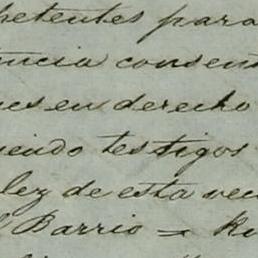 petentes para
ncia consent
nes en derecho
iendo testigos
lez de esta veci
l Barrio =